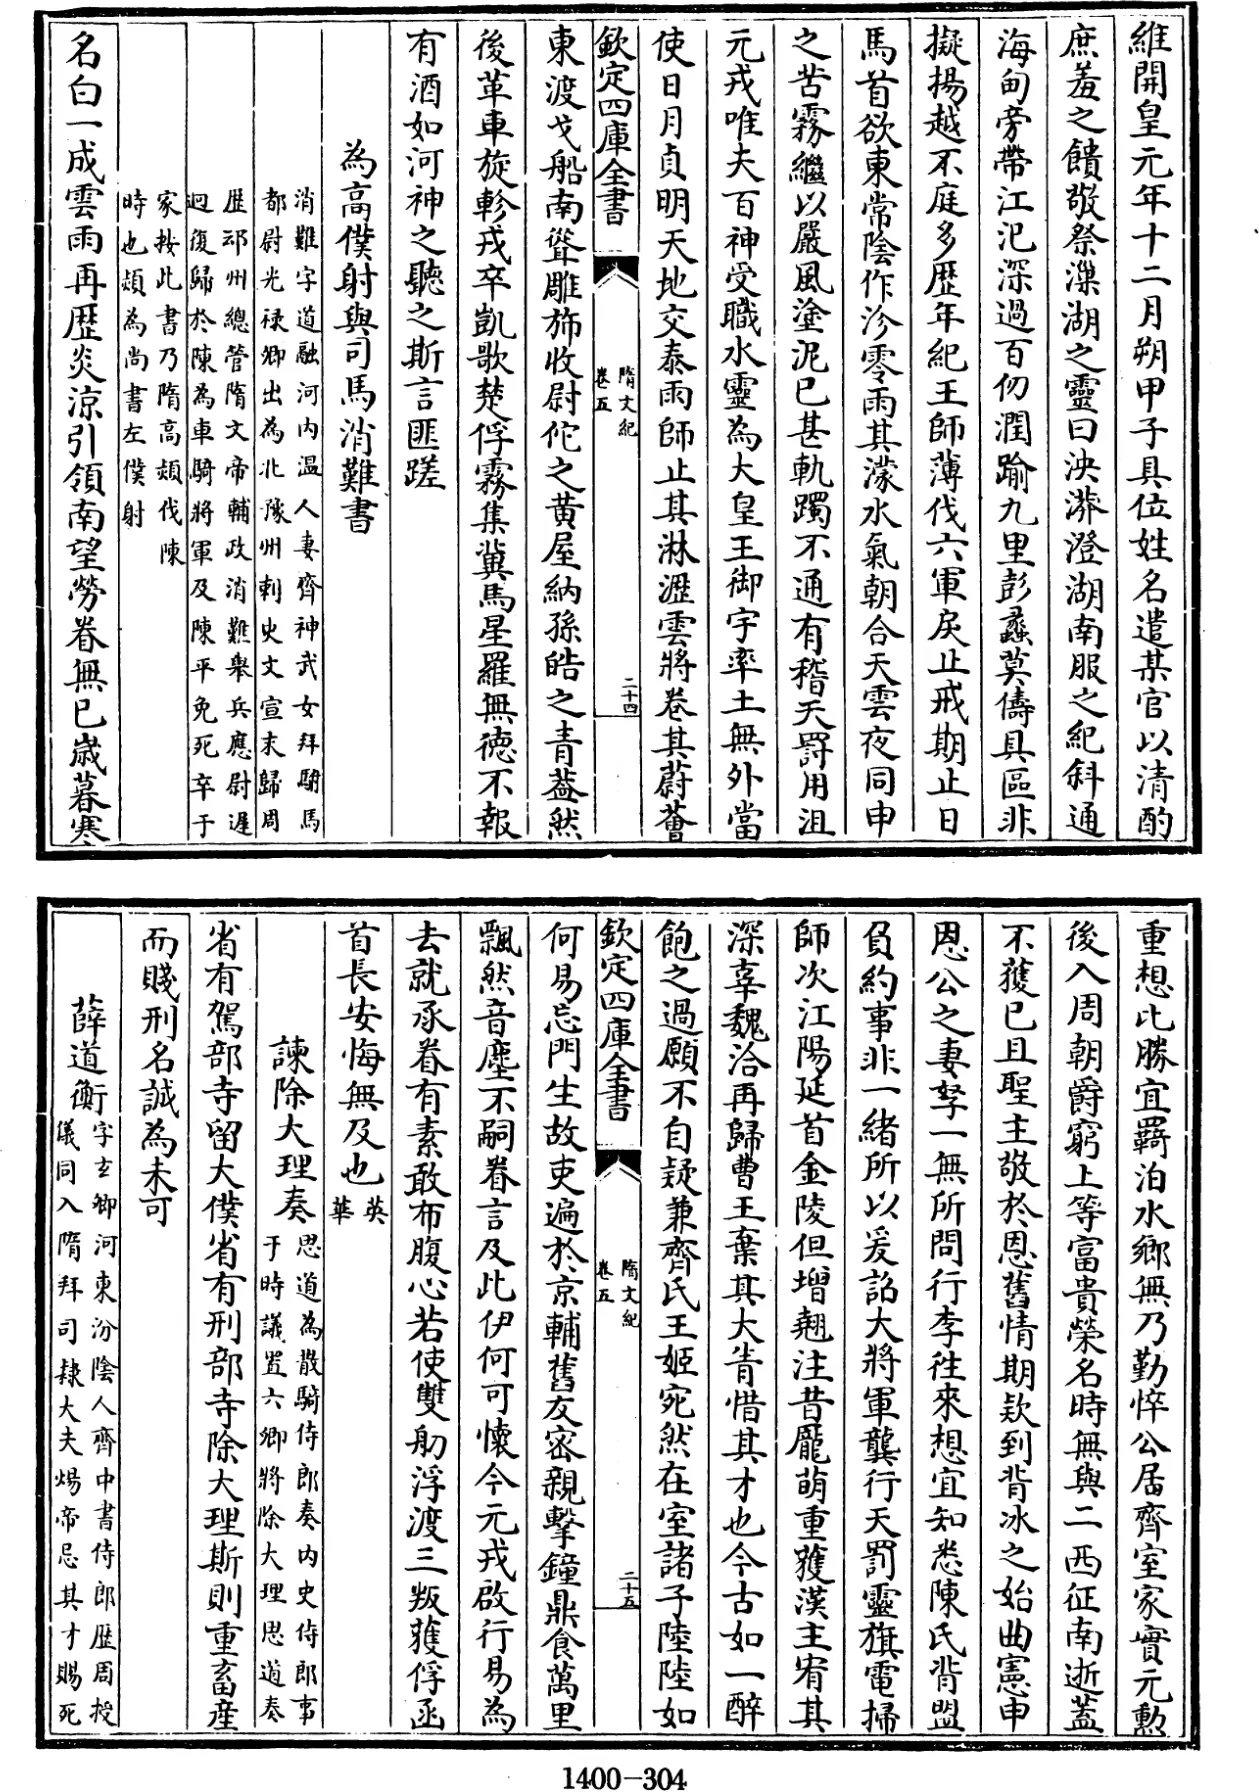 維開皇元年十二月朔甲子具位姓名遣某官以清酌
庶羞之饋敬祭漅湖之靈曰泱漭澄湖南服之紀斜通
海甸旁帶江汜深過百仞潤踰九里彭蠡莫儔具區非
擬揚越不庭多歷年紀王師薄伐六軍戾止戒期止日
馬首欲東常陰作沴零雨其濛水氣朝合天雲夜同申
之苦霧繼以嚴風塗泥已甚軌躅不通有稽天罸用沮
元戎唯夫百神受職水靈為大皇王御宇率土無外當
使日月貞明天地交泰雨師止其淋瀝雲將卷其蔚薈
欽定四庫全書
隋文紀
卷五
二十四
東渡戈船南耸雕斾收尉佗之黃屋納孫皓之青葢然
後革車旋軫戎卒凱歌楚俘霧集冀馬星羅無德不報
有酒如河神之聽之斯言匪蹉
為高僕射與司馬消難書
消難字道融河内温人妻齊神武女拜駙馬
都尉光祿卿出為北豫州刺史文宣末歸周
歴邙州總管隋文帝輔政消難舉兵應尉遲
迥復歸於陳為車騎將軍及陳平免死卒于
家按此書乃隋高熲伐陳
時也熲為尚書左僕射
名白一成雲雨再歴炎涼引領南望勞眷無已歲暮寒
重想比勝宜羇泊水鄉無乃勤悴公居齊室家實元勲
後入周朝爵窮上等富貴榮名時無與二西征南逝蓋
不獲已且聖主敬於恩舊情期欵到背冰之始曲憲申
恩公之妻孥一無所問行李往來想宜知悉陳氏背盟
負約事非一緒所以爰詔大將軍龔行天罰靈旗電掃
師次江陽延首金陵但增翹注昔龐萌重獲漢主宥其
深辜魏洽再歸曹王棄其大眚惜其才也今古如一醉
飽之過願不自疑兼齊氏王姬宛然在室諸子陸陸如
欽定四庫全書
隋文紀
卷五
二十五
何易忘門生故吏遍於京輔舊友密親擊鐘鼎食萬里
飄然音塵不嗣眷言及此伊何可懷今元戎啟行易為
去就承眷有素敢布腹心若使雙舠浮渡三叛獲俘函
首長安悔無及也英
華
諫除大理奏
思道為散騎侍郎奏内史侍郎事
于時議置六卿將除大理思道奏
省有駕部寺留大僕省有刑部寺除大理斯則重畜産
而賤刑名誠為未可
薛道衡
字玄卿河東汾陰人齊中書侍郎歴周授
儀同入隋拜司隸大夫煬帝忌其才賜死
1400-304